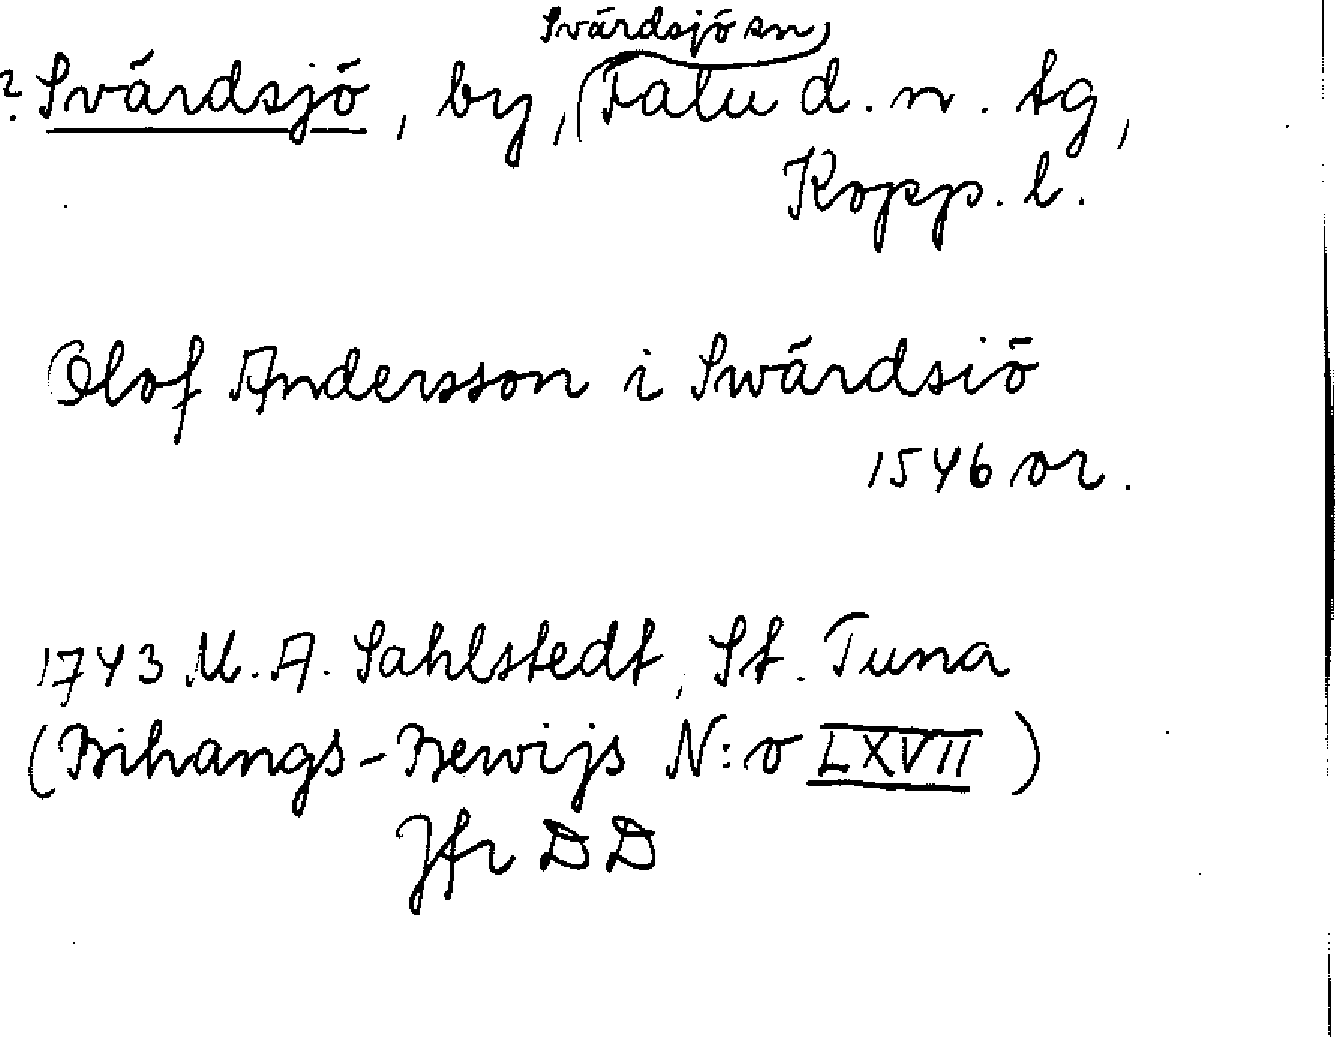 Svärdsjö sn,
? Svärdsjö, by, Falu d. n. tg,
Kopp. l.
Olof Andersson i Swärdsiö
1546 or.
1743 M. A. Sahlstedt, St. Tuna
(Bihangs-Bewijs N:o LXVII)
Jfr DD